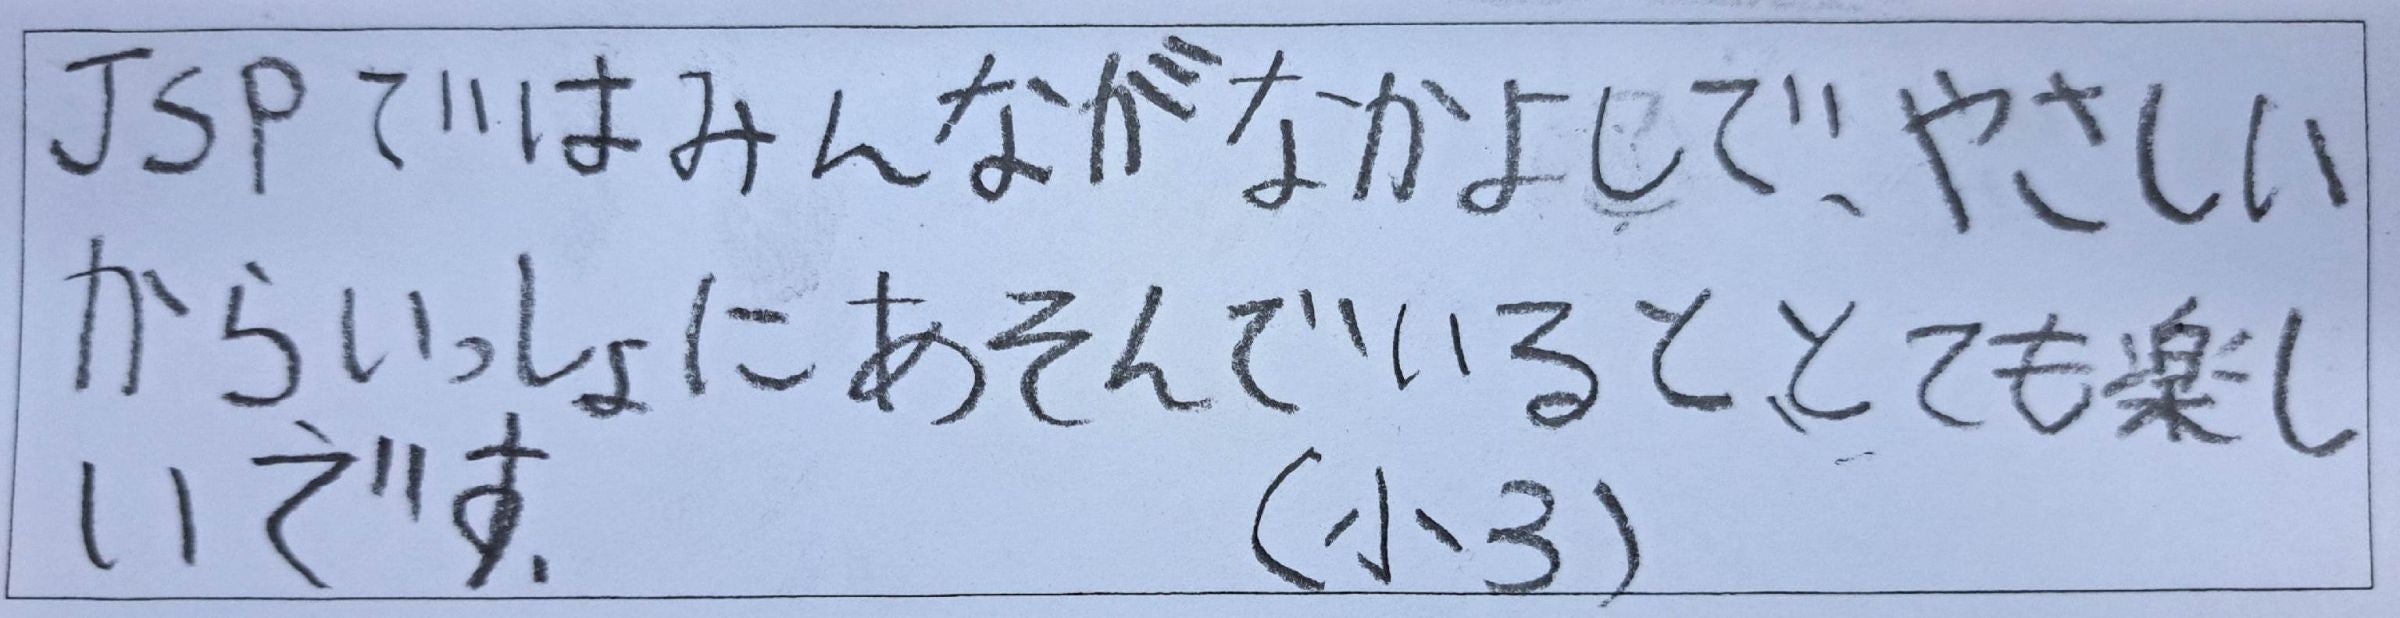 JSPではみんながなかよしで、やさしい
からいっしょにあそんでいると、とても楽し
いです.
(小3)